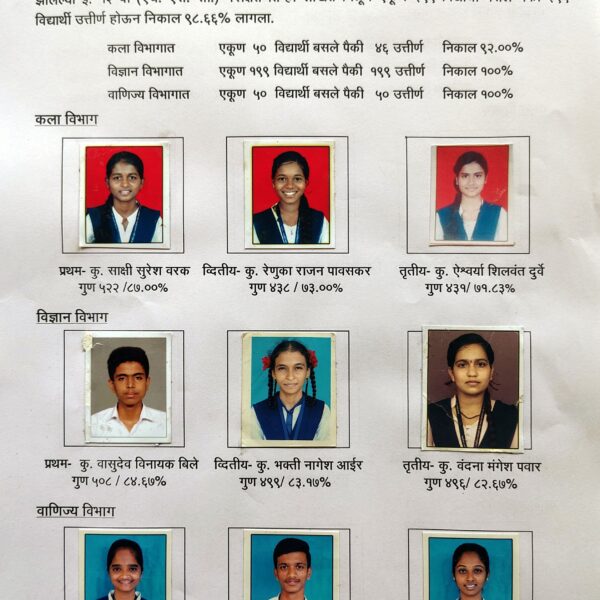 विद्यार्थी उत्तीर्ण होऊन निकाल ९८.६६% लागला.
कला विभागात एकूण ५० विद्यार्थी बसले पैकी ४६ उत्तीर्ण निकाल ९२.००%
विज्ञान विभागात एकूण १९९ विद्यार्थी बसले पैकी १९९ उत्तीर्ण निकाल १००%
वाणिज्य विभागात एकूण ५० विद्यार्थी बसले पैकी ५० उत्तीर्ण निकाल १००%
कला विभाग
प्रथम- कु. साक्षी सुरेश वरक व्दितीय- कु. रेणुका राजन पावसकर तृतीय- कु. ऐश्वर्या शिलवंत दुर्वे
गुण ५२२ /८७.००% गुण ४३८ / ७३.००% गुण ४३१/ ७१.८३%
विज्ञान विभाग
प्रथम- कु. वासुदेव विनायक बिले व्दितीय- कु. भक्ती नागेश आईर तृतीय- कु. वंदना मंगेश पवार
गुण ५०८ / ८४.६७% गुण ४९९/ ८३.१७% गुण ४९६/ ८२.६७%
वाणिज्य विभाग